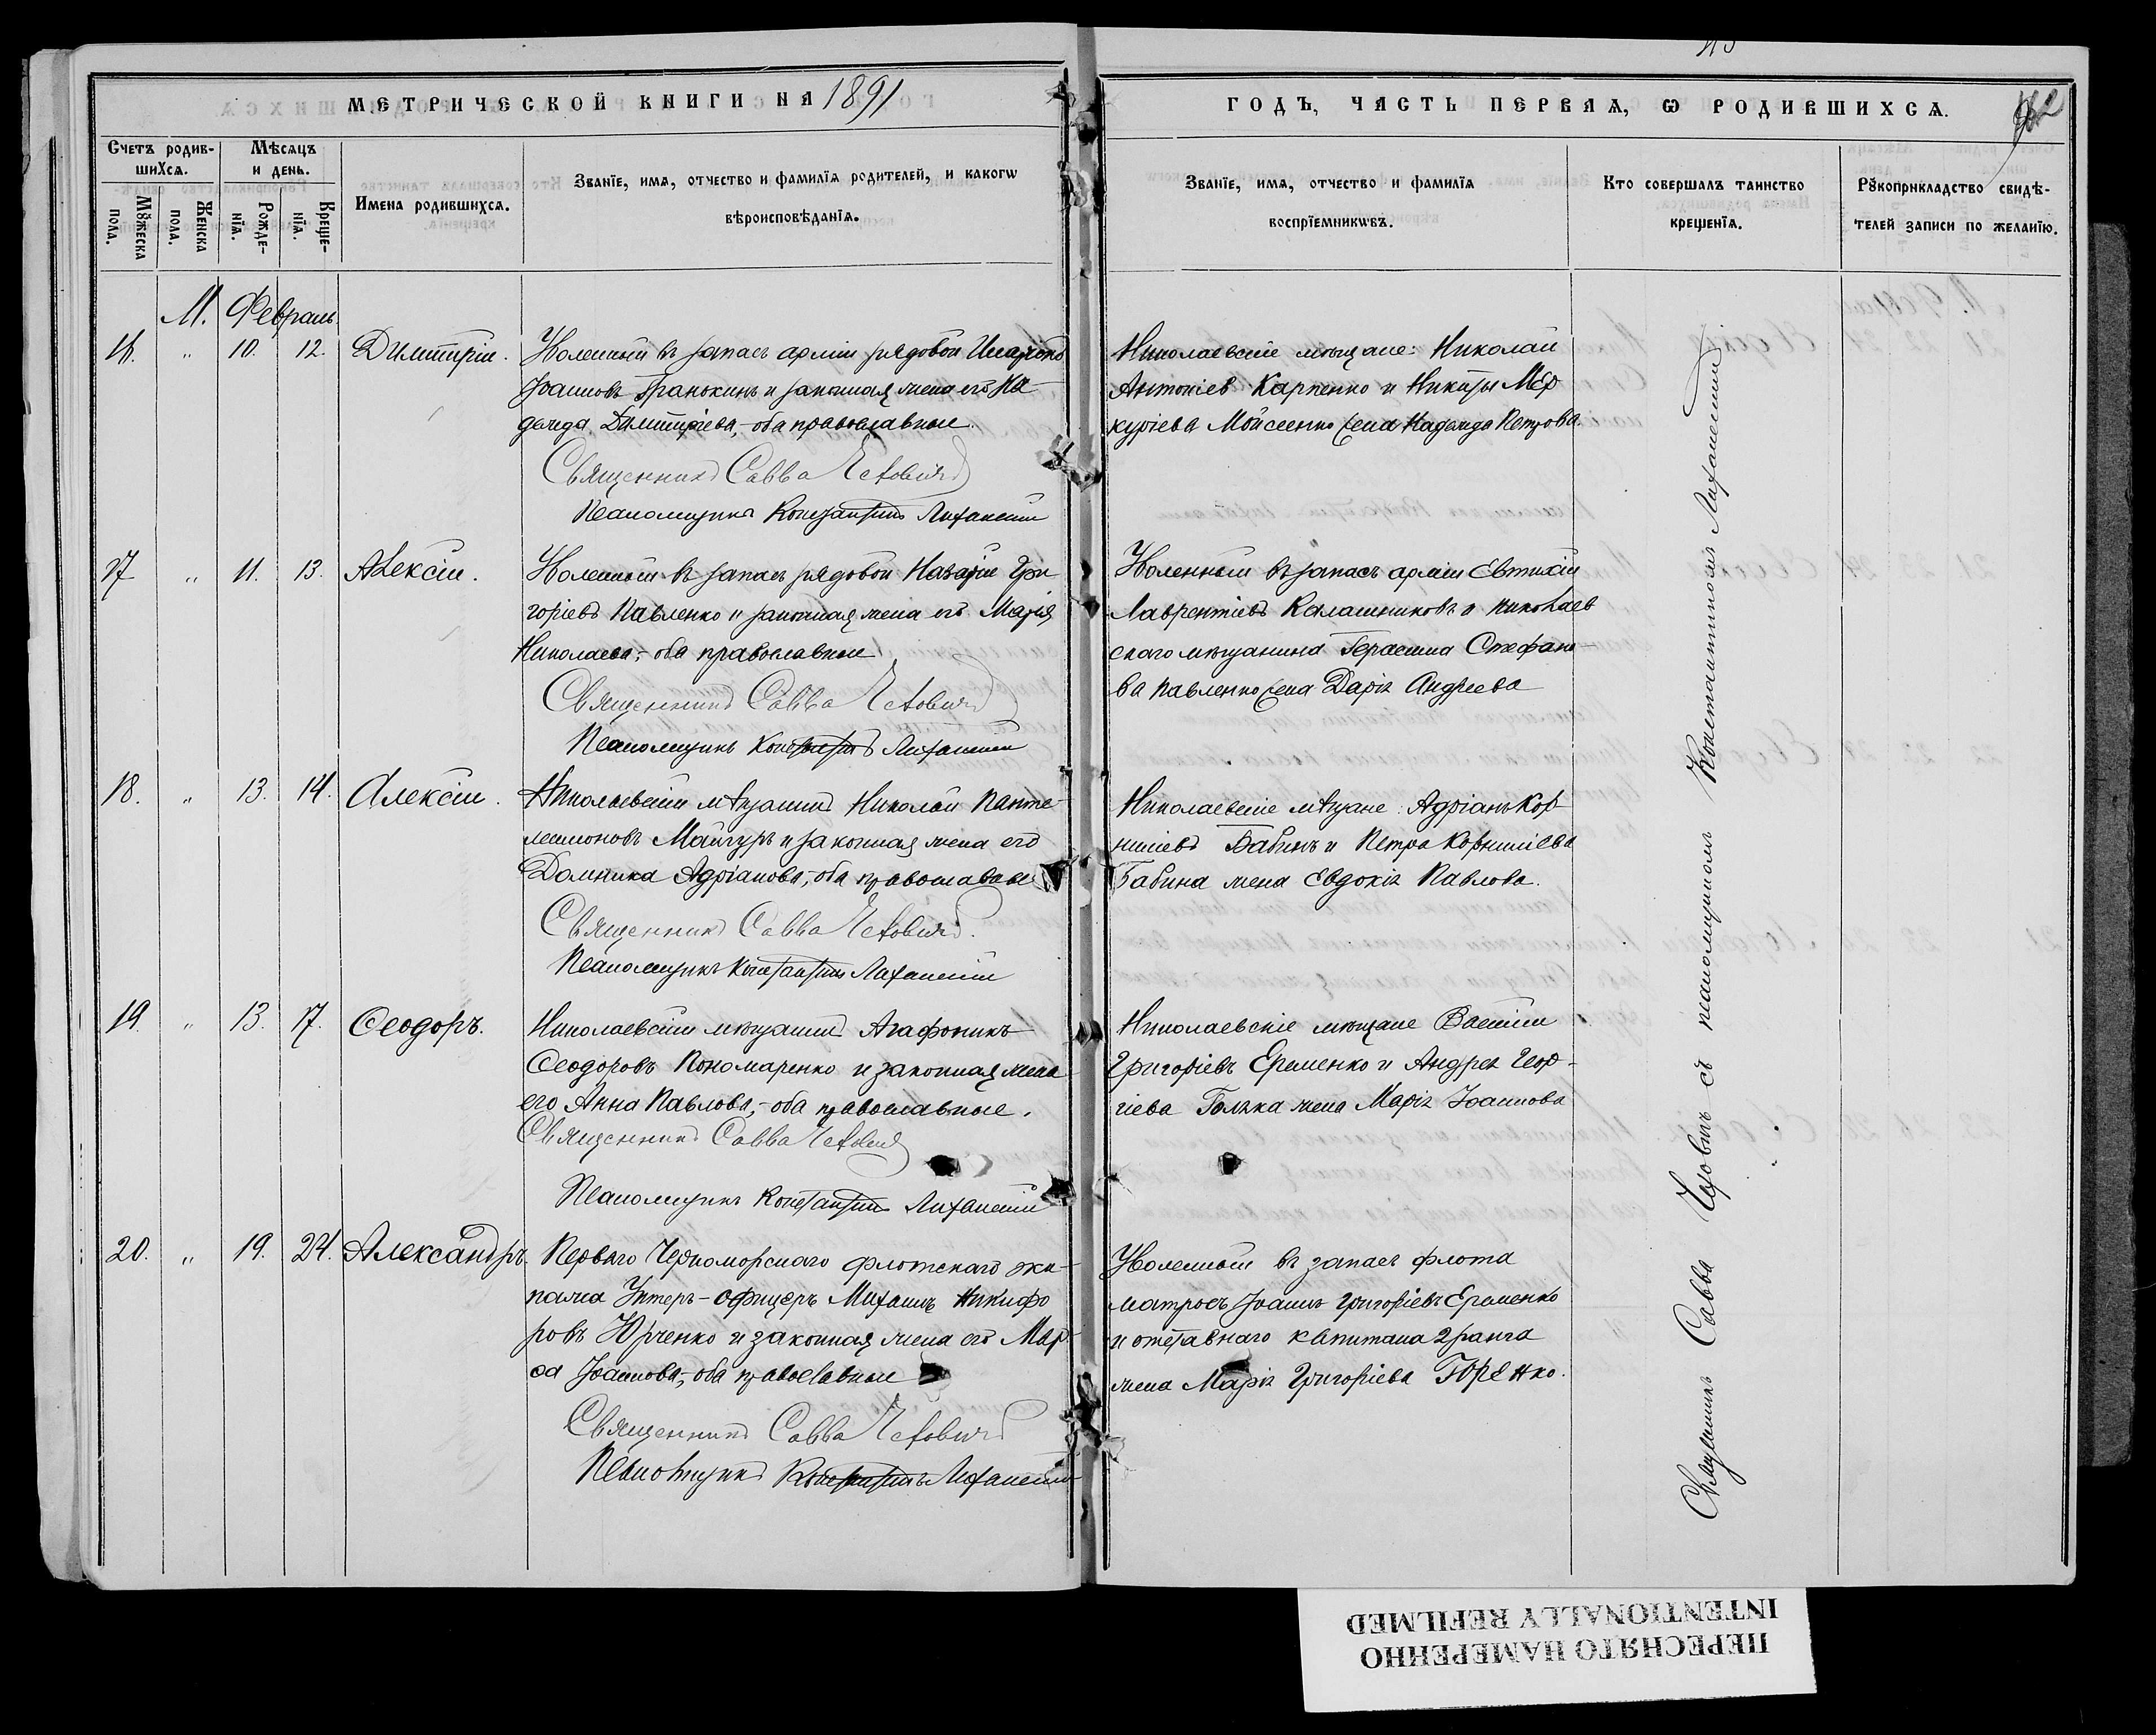 МЕТРИЧЕСКОЙ КНИГИ НА 1891
ГОДЪ, ЧАСТЬ ПЕРВАЯ, Ѡ РОДИВШИХСѦ.
Счетъ родив-
шихсѧ.
Мꙋжеска
пола.
Женска
пола.
Мѣсѧцъ
и день.
Рожде-
нїѧ.
Креще-
нїѧ.
Имена родившихсѧ.
Званїе, имѧ, отчество и фамилїѧ родителей, и какогѡ
вѣроисповѣданїѧ.
Званїе, имѧ, отчество и фамилїѧ
воспрїемникѡвъ.
Кто совершалъ таинство
крещенїѧ.
Рꙋкоприкладство свидѣ-
телей записи по желанїю.
М. Февраль
16. " 10. 12. Димитрій.
Уволенный въ запасъ арміи рядовой
Іоанновъ и законная жена его На-
дежда Димитріева,- оба православные.
Священникъ Савва Чехович
Псаломщикъ Константинъ Лиханскій
Николаевскіе мѣщане: Николай
Антоніев Карпенко и Никиты Мер
куріева Мойсеенко жена Надежда Петрова.
17 " 11. 13. Алексій.
Уволенный въ запасъ рядовой Назарій Гри
горіевъ Павленко и законная жена его Марія
Николаева,- оба православные
Священникъ Савва Чехович
Псаломщикъ Константинъ Лиханскій
Уволенный въ запасъ арміи Евтихій
Лаврентіевъ Калашниковъ и николаев
скаго мѣщанина Герасима Стефано-
ва Павленко жена Дарія Андреева
18. " 13. 14. Алексій.
Николаевскій мѣщанинъ Николай Панте-
леимоновъ Майгуръ и законная жена его
Домника Адріанова,- оба православные
Священникъ Савва Чехович.
Псаломщикъ Константинъ Лиханскій
Николаевскіе мѣщане: Адріанъ Кор
ниліевъ Бабинъ и Петра Корниліева
Бабина жена Евдокія Павлова.
19. " 13. 17. Ѳеодоръ.
Николаевскій мѣщанинъ Агафоникъ
Ѳеодоровъ Пономаренко и законная жена
его Анна Павлова,- оба православные.
Священникъ Савва Чехович
Псаломщикъ Константинъ Лиханскій
Николаевскіе мѣщане Василій
Григоріевъ Еременко и Андрея Геор-
гіева жена Марія Іоаннова
20. " 19. 24. Александръ.
Перваго Черноморскаго флотскаго эки-
пажа Унтеръ-офицеръ Михаилъ Никифо
ровъ Юрченко и законная жена его Мар-
ѳа Іоаннова,- оба православные
Священникъ Савва Чехович
Псаломщикъ Константинъ Лиханскій
Уволенный въ запасъ флота
матросъ Іоаннъ Григоріевъ Еременко
и отставнаго капитана 2 ранга
жена Марія Григоріева Горенко.
Священникъ Савва Чеховичъ съ псаломщикомъ Константиномъ Лиханскимъ
ПЕРЕСНЯТО НАМЕРЕННО
INTENTIONALLY REFILMED